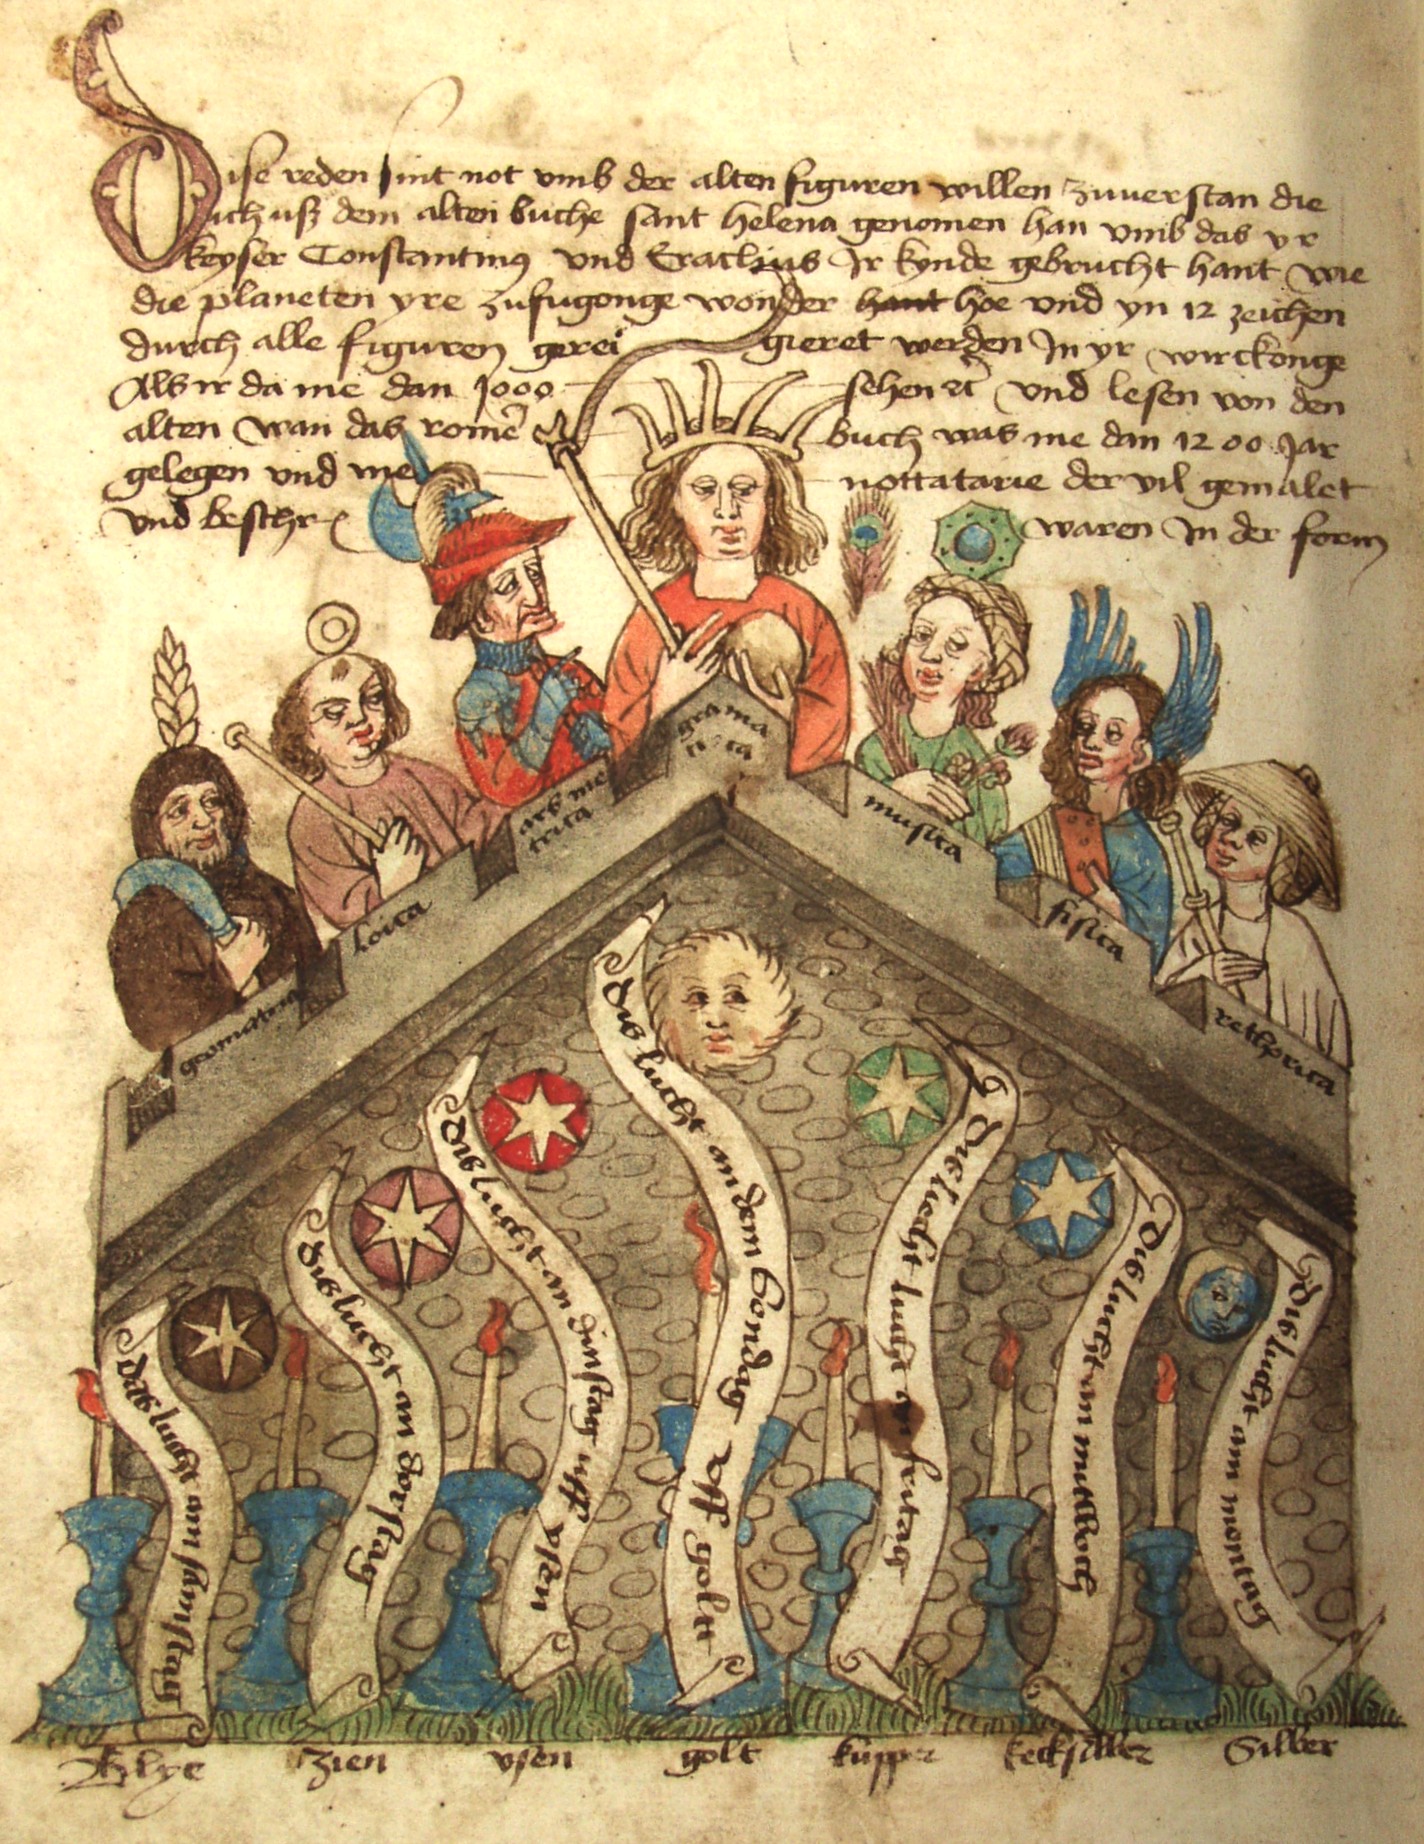 Dise reden sint not vmb der alten figuren willen zuuerstan die
ich uß dem alten buche sant Helena genomen han vmb das yr
keyser Constantinus vnd Eraclius Ir kynde gebrucht hant wie
die planeten yre zufugonge wonder hant hoe vnd yn 12 zeichen
durch alle figuren gerei gieret werden In yr wirckonge
Als ir da me dan 1000 sehen vnd lesen von den
alten wan das buch was me dan 1200 Jar
gelegen vnd me nottatarie der vil gemalet
vnd beschr waren In der form
grama
tica
ars me
trica
musica
loica
fisica
rethorica
Dis lucht an dem Sondag vff goltt
Dis lucht an dinstag uff ysen
lucht fritag
Dis lucht an dorstag
Dis lucht an mitwoch
Dis lucht am montag
Das lucht am samstag
Blye zien ysen golt kupper kecksilber Silber